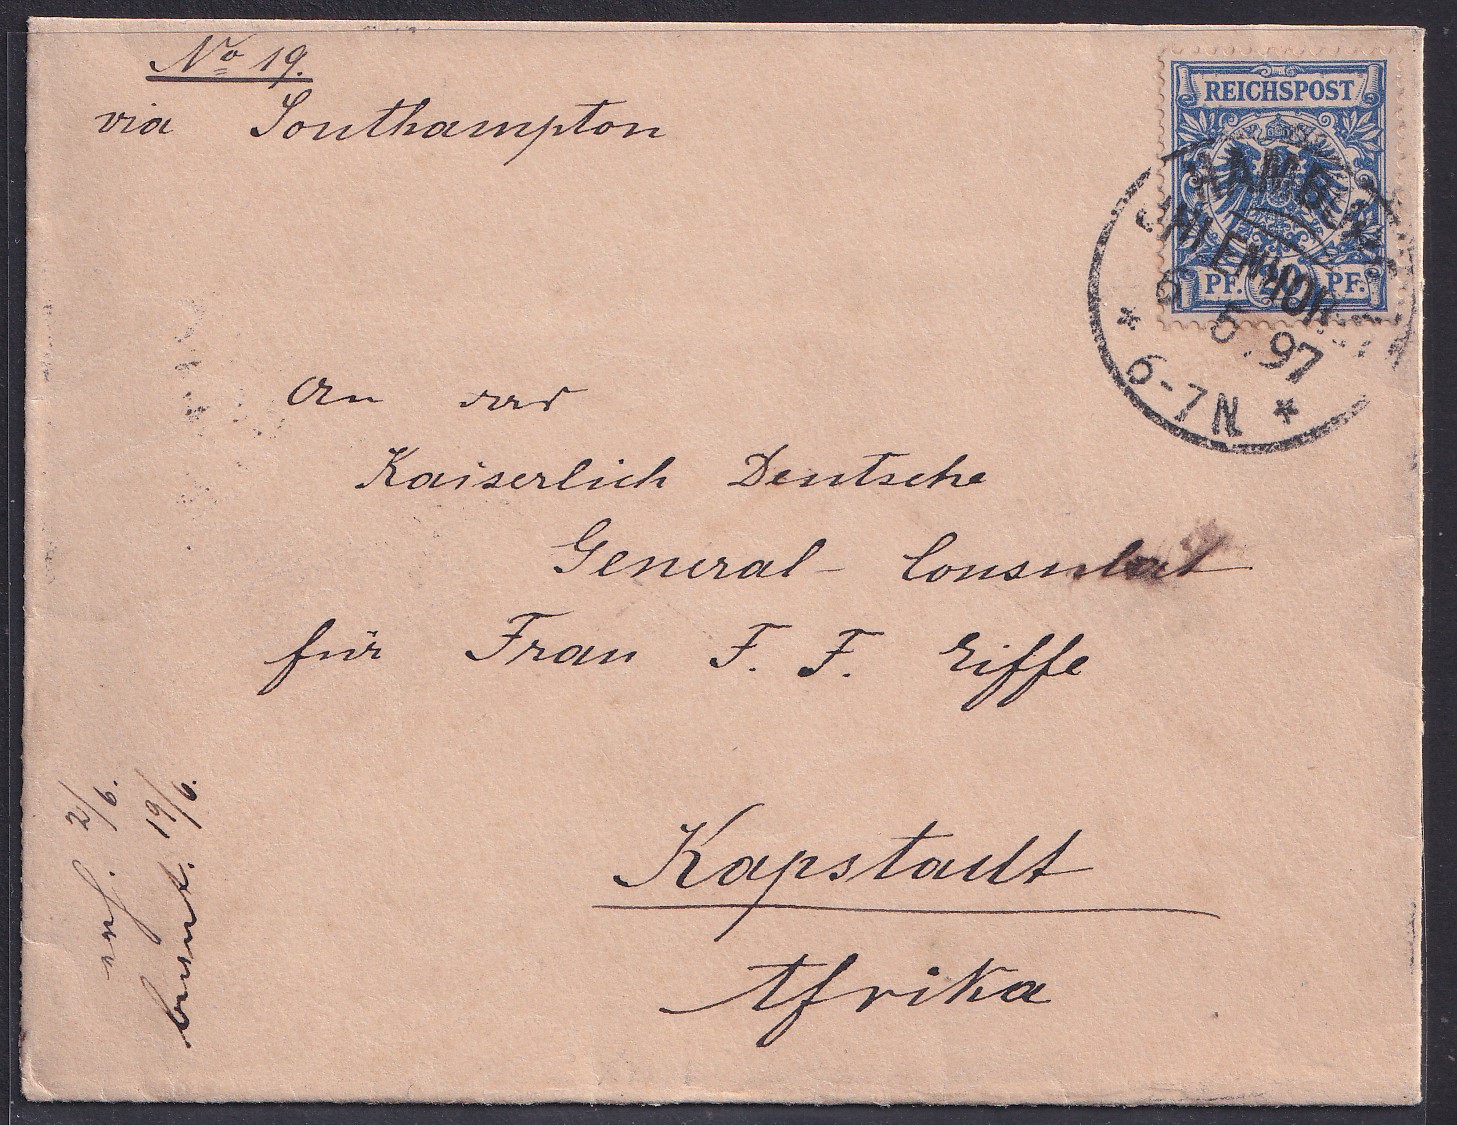 No 19.
via Southampton
REICHSPOST
PF. 20 PF.
HAMBURG
UHLENHORST
5.97
6-7N
An das
Kaiserlich Deutsche
General-Consulat
für Frau F. F. Eiffe
Kapstadt
Afrika
empf. 2/6.
beant. 19/6.